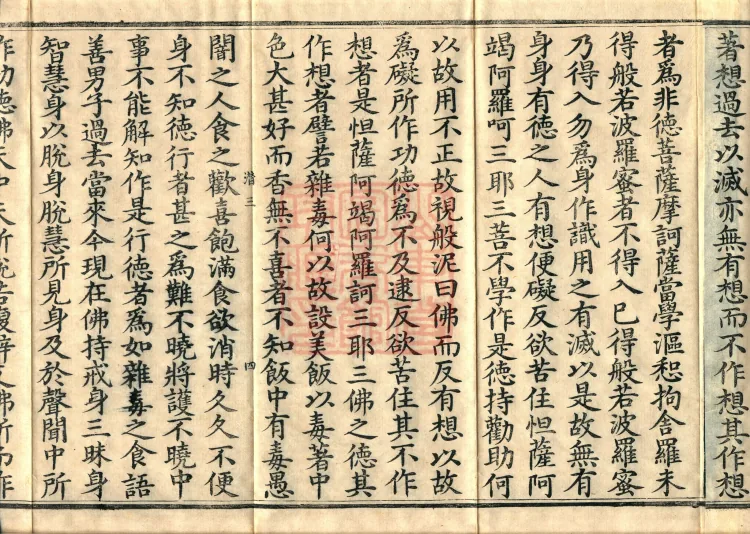 著想過去以滅亦無有想而不作想其作想
者為非德菩薩摩訶薩當學漚惒拘舍羅未
得般若波羅蜜者不得入已得般若波羅蜜
乃得入勿為身作識用之有滅以是故無有
身身有德之人有想便礙反欲苦住怛薩阿
竭阿羅呵三耶三菩不學作是德持勸助何
以故用不正故視般泥曰佛而反有想以故
為礙所作功德為不及逮反欲苦住其不作
想者是怛薩阿竭阿羅訶三耶三佛之德其
作想者譬若雜毒何以故設美飯以毒著中
色大甚好而香無不喜者不知飯中有毒愚
闇之人食之歡喜飽滿食欲消時久久不便
潜三 四
身不知德行者甚之為難不曉將護不曉中
事不能解知作是行德者為如雜毒之食語
善男子過去當來今現在佛持戒身三昧身
智慧身以脫身脫慧所見身及於聲聞中所
作功德佛天中天所說